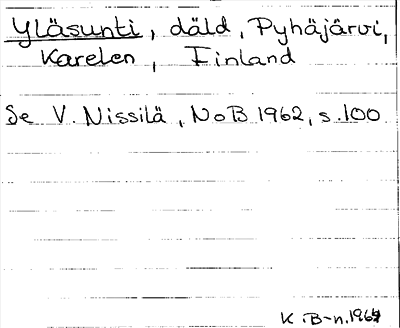 Yläsunti, däld, Pyhäjärvi,
Karelen, Finland
Se V. Nissilä, NoB 1962, s.100
K.B-n.1964